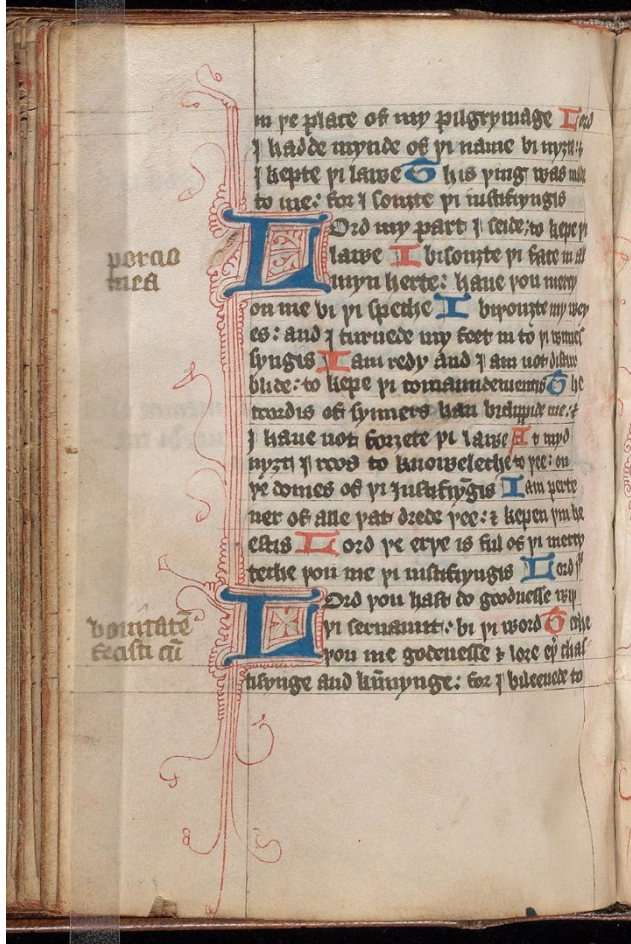 in þe place of my pilgrymage Lord
I hadde mynde of þi name bi nyȝt: &
I kepte þi lawe This þing was made
to me: for I souȝte þi iustifiyngis
porcio
mea
LOrd my part I seide: to kepe þi
lawe I bisouȝte þi face in al
myn herte: haue þou mercy
on me bi þi speche I biþouȝte my wey
es: and I turnede my feet in to þi witnes
syngis I am redy and I am not distur
blide: to kepe þi comaundementis The
coordis of synners han biclippide me: &
I haue not forȝete þi lawe At myd
nyȝt I roos to knoweleche to þee: on
þe domes of þi iustifiyngis I am parte
ner of alle þat drede þee: & kepen þin he
estis Lord þe erþe is ful of þi mercy
teche þou me þi iustifiyngis Lord
bonitatē
fecisti cū
LOrd þou hast do goodnesse wiþ
þi seruaunt: bi þi word Teche
þou me godenesse & lore & chas
tisynge and kūnynge: for I bileeuede to